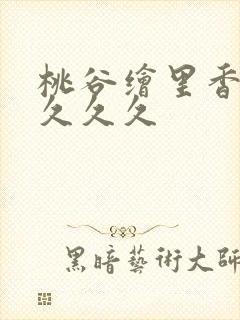 桃谷繪里香
久久久
黑暗藝術大師